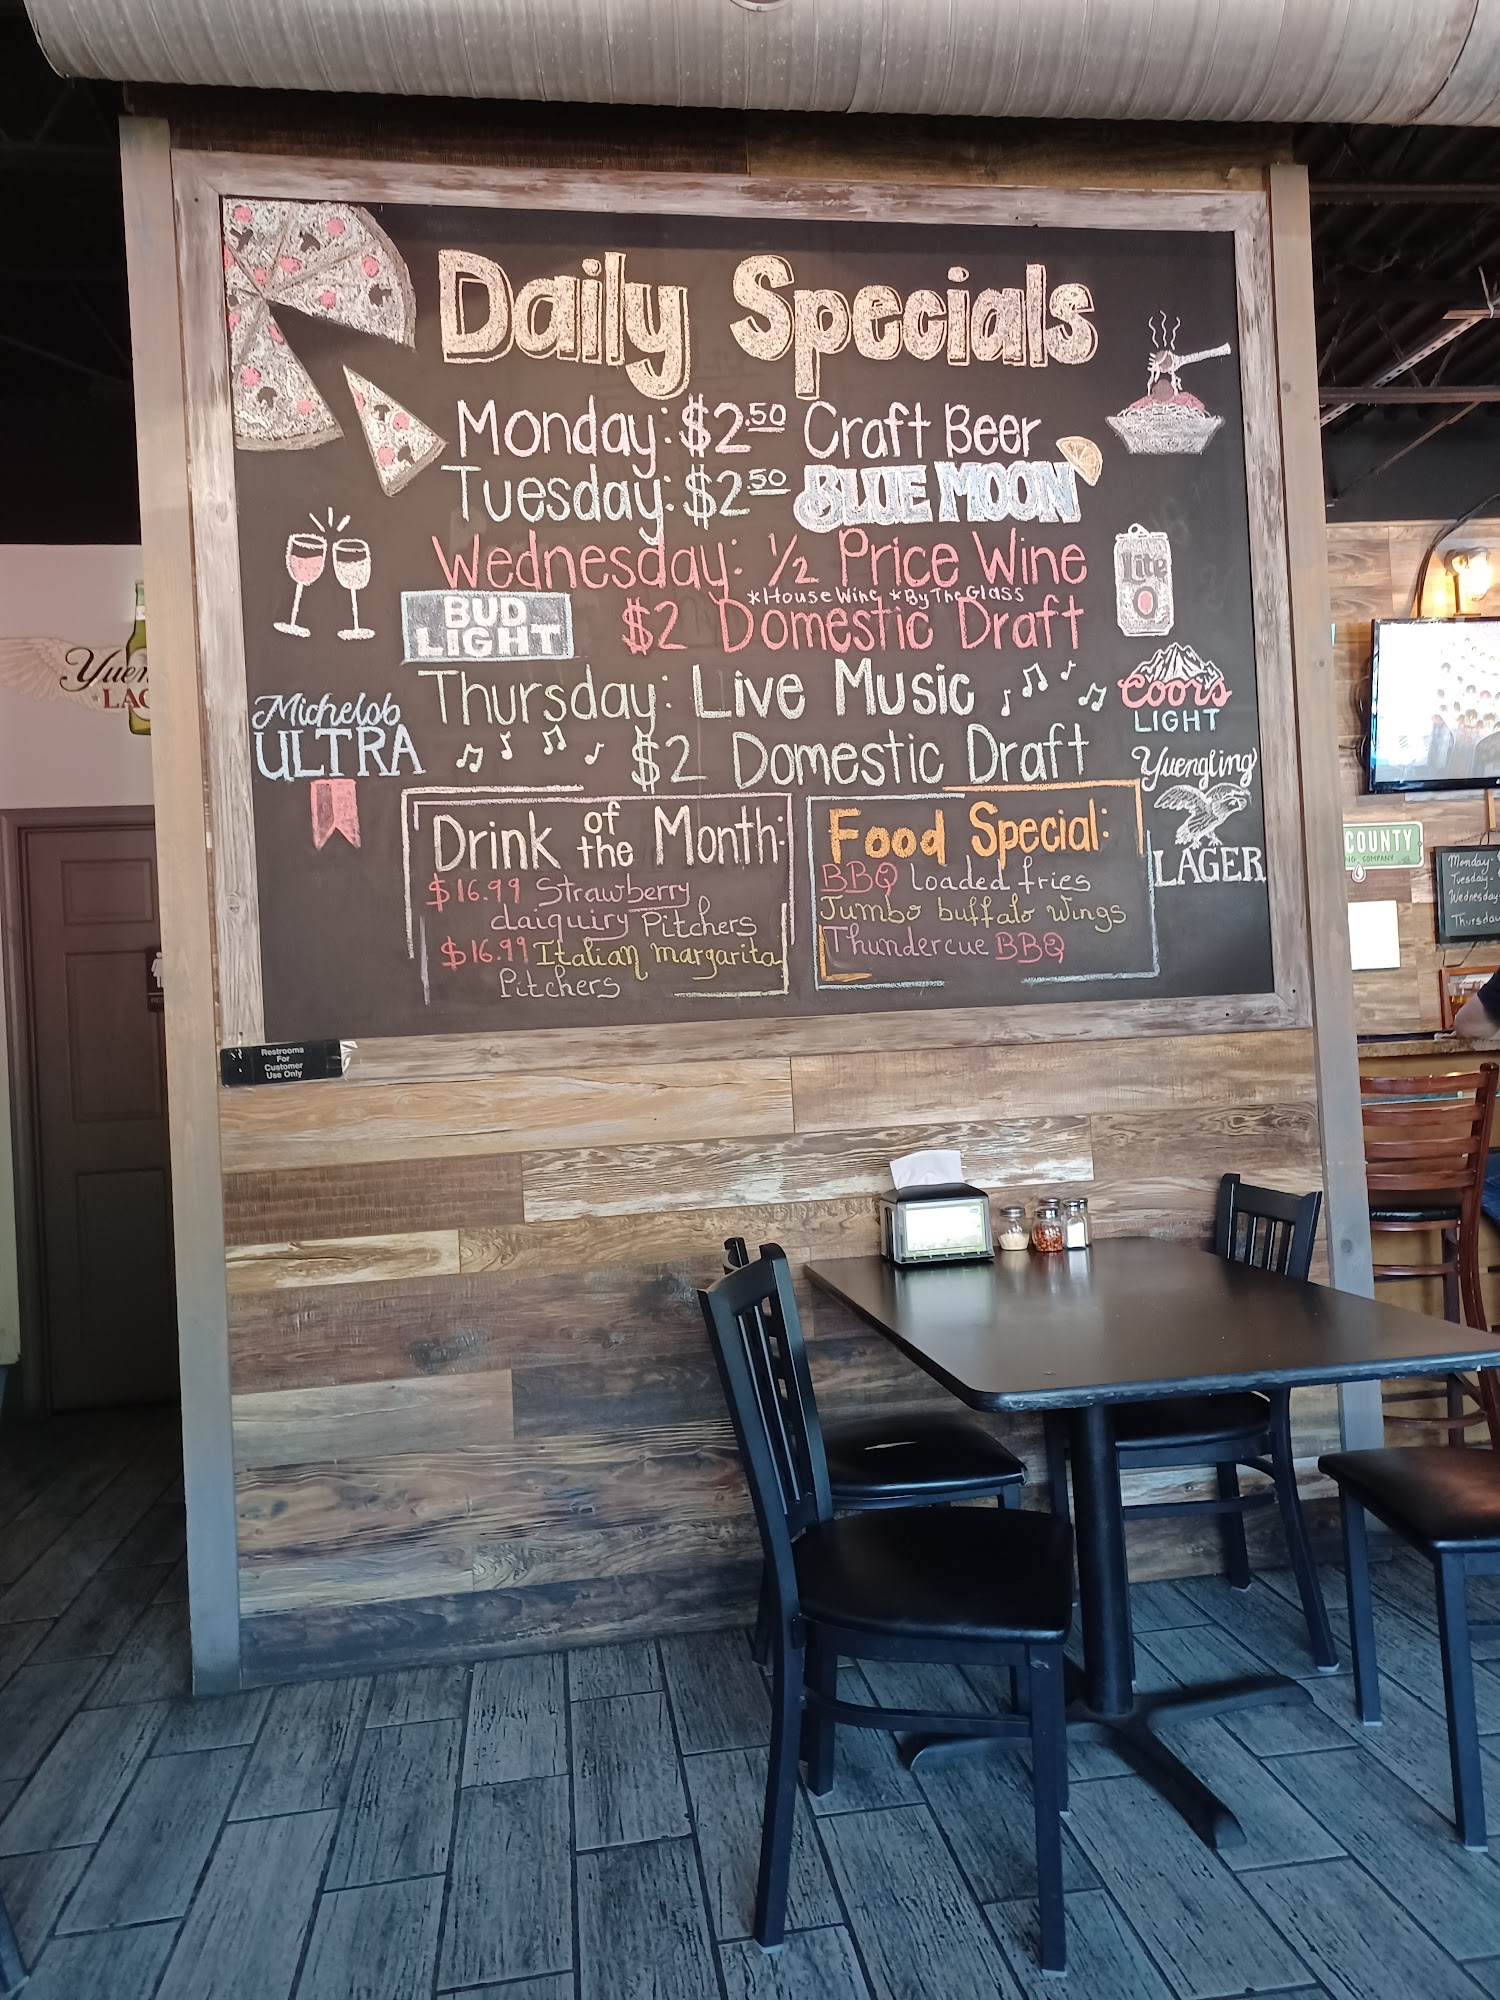 Daily Specials
Monday: $2.50 Craft Beer
Tuesday: $2.50 BLUE MOON
Wednesday: 1/2 Price Wine
*House Wine *By The Glass
BUD
LIGHT
$2 Domestic Draft
Thursday: Live Music
$2 Domestic Draft
Michelob
ULTRA
Lite
Coors
LIGHT
Yuengling
LAGER
Drink of the Month:
$16.99 Strawberry
daiquiry Pitchers
$16.99 Italian margarita
Pitchers
Food Special:
BBQ loaded fries
Jumbo buffalo wings
Thundercue BBQ
Restrooms
For
Customer
Use Only
Yuen
LAG
COUNTY
COMPANY
Monday-
Tuesday-
Wednesday
Thursda